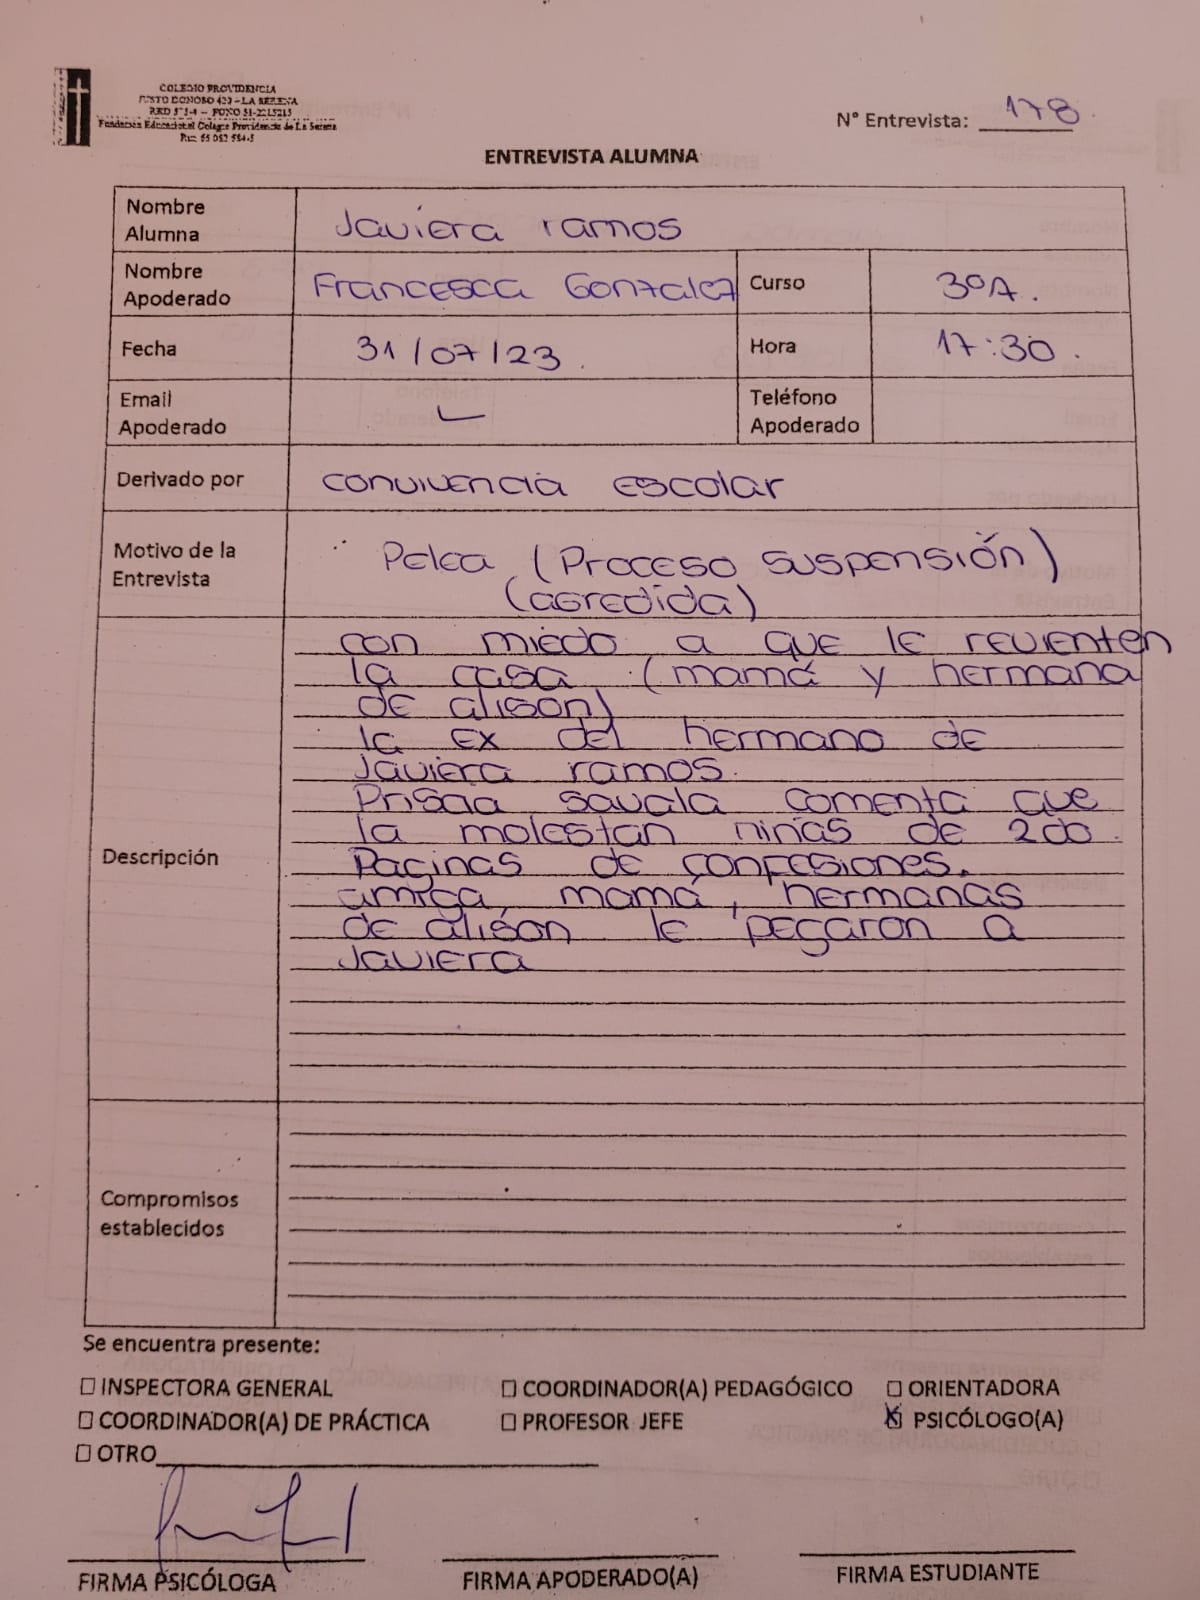 COLEGIO PROVIDENCIA
JUSTO DONOSO 420 – LA SERENA
Fundación Educacional Colegio Providencia de La Serena
N° Entrevista: 178
ENTREVISTA ALUMNA
Nombre Alumna Javiera ramos
Nombre Apoderado Francesca Gonzalez Curso 3ºA.
Fecha 31/07/23. Hora 17:30.
Email Apoderado Teléfono Apoderado
Derivado por convivencia escolar
Motivo de la Entrevista Pelea (Proceso suspensión)
(agredida)
Descripción
con miedo a que le revienten
la casa (mamá y hermana
de alison)
la ex del hermano de
Javiera ramos.
Prisaa savala comenta que
la molestan niñas de 2do.
Paginas de confesiones.
amiga, mamá, hermanas
de alison le pegaron a
Javiera
Compromisos establecidos
Se encuentra presente:
☐ INSPECTORA GENERAL ☐ COORDINADOR(A) PEDAGÓGICO ☐ ORIENTADORA
☐ COORDINADOR(A) DE PRÁCTICA ☐ PROFESOR JEFE ☒ PSICÓLOGO(A)
☐ OTRO
FIRMA PSICÓLOGA FIRMA APODERADO(A) FIRMA ESTUDIANTE